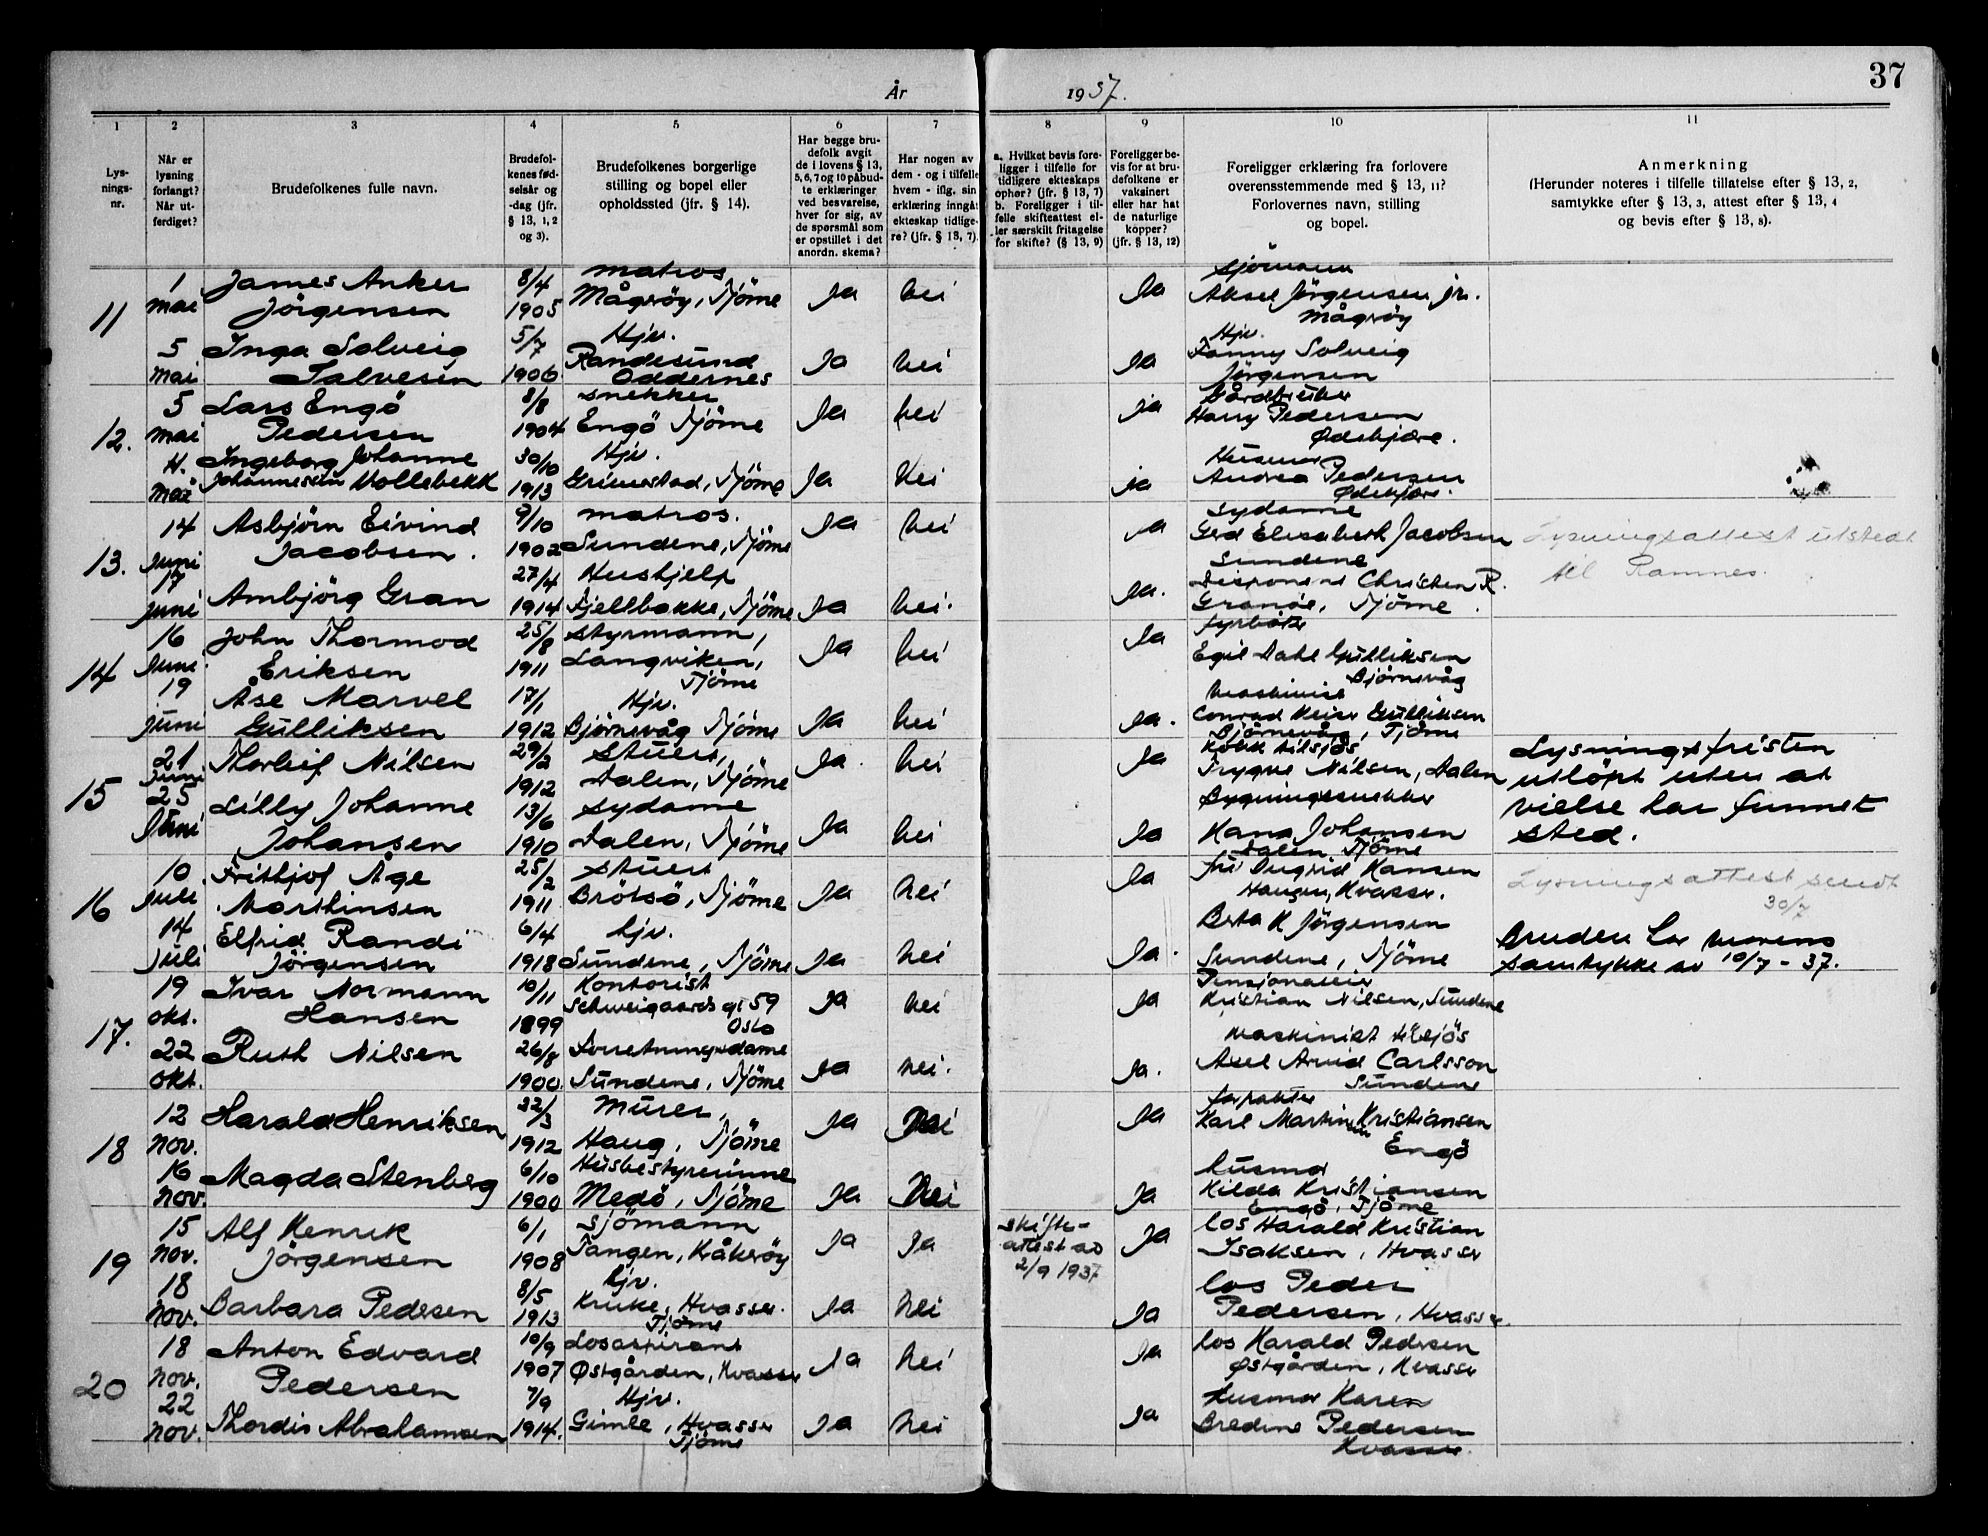 37
År 1937.
1 2 3 4 5 6 7 8 9 10 11
Lys-
nings-
nr.
Når er
lysning
forlangt?
Når ut-
ferdiget?
Brudefolkenes fulle navn.
Brudefol-
kenes fød-
selsår og
-dag (jfr.
§ 13, 1, 2
og 3).
Brudefolkenes borgerlige
stilling og bopel eller
opholdssted (jfr. § 14).
Har begge bru-
defolk avgit
de i lovens § 13,
5, 6, 7 og 10 påbud-
te erklæringer
ved besvarelse,
hver for sig, av
de spørsmål som
er opstillet i det
anordn. skema?
Har nogen av
dem - og i tilfelle
hvem - iflg. sin
erklæring inngåt
ekteskap tidlige-
re? (jfr. § 13, 7).
a. Hvilket bevis fore-
ligger i tilfelle for
tidligere ekteskaps
ophør? (jfr. § 13, 7)
b. Foreligger i til-
felle skifteattest el-
ler særskilt fritagelse
for skifte? (§ 13, 9)
Foreligger be-
vis for at bru-
defolkene er
vaksinert
eller har hat
de naturlige
kopper?
(jfr. § 13, 12)
Foreligger erklæring fra forlovere
overensstemmende med § 13, 11?
Forlovernes navn, stilling
og bopel.
Anmerkning
(Herunder noteres i tilfelle tillatelse efter § 13, 2,
samtykke efter § 13, 3, attest efter § 13, 4
og bevis efter § 13, 8).
11
1 James Anker 8/4 matros
mai Jörgensen 1905 Mågerøy, Tjöme Ja nei Ja sjömann
Aksel Jörgensen jr.
Mågerøy
5 Inga Solveig 5/7 Hjv.
mai Salvesen 1906 Randesund
Oddernes Ja nei Ja Hjv.
Fanny Solveig
Jörgensen
12.
5 Lars Engö 8/8 snekker
mai Pedersen 1904 Engö Tjöme Ja nei ja Gårdbruker
Harry Pedersen
Ødekjære.
Ingeborg Johanne 30/10 Hjv.
mai Johannessen Mollebekk 1913 Grimestad, Tjöme Ja Nei ja Husmor
Andrea Pedersen
Ødekjære.
13.
14 Asbjörn Eivind 9/10 matros.
Juni Jacobsen. 1902 Sundene, Tjöme Ja nei Ja Sydame
Gerd Elisabeth Jacobsen
Sundene
Lysningsattest utstedt
til Ramnes.
17 Ambjörg Gran 27/4 Hushjelp
juni 1914 Fjellbakke, Tjöme Ja nei. Ja. Disponent Christen R.
Granöe, Tjöme.
14
16 John Thormod 25/8 Styrmann,
Juni Eriksen 1911 Langviken,
Tjöme Ja nei Ja fyrböter
Egil Dahl Gulliksen
Bjørnevåg
19 Åse Marvel 17/1 Hjv.
juni Gulliksen 1912 Bjørnevåg Tjöme Ja nei Ja. Maskinist
Conrad Meier Gulliksen
Bjørnevåg, Tjöme
15
21 Thorleif Nilsen 29/2 Stuert,
Juni 1912 Dalen, Tjöme Ja. nei Ja Kokk tilsjös
Trygve Nilsen, Dalen
Lysningsfristen
utlöpt uten at
vielse har funnet
sted.
25 Lilly Johanne 13/6 Sydame
Juni Johansen 1910 Dalen, Tjöme Ja nei Ja Bygningssnekker
Hans Johansen
Dalen Tjöme
16
10 Frithjof Åge 25/2 Stuert
Juli Marthinsen 1911 Brötsö, Tjöme Ja nei Ja fru Ingrid Hansen
Haugen, Hvasser.
Lysningsattest sendt
30/7
14 Elfrid Randi 6/4 hjv.
juli Jörgensen 1918 Sundene, Tjöme Ja nei Ja. Berta K Jörgensen
Sundene, Tjöme
Bruden har morens
samtykke av 10/7-37.
17.
19 Ivar Normann 10/11 Kontorist
okt. Hansen 1899 Schweigaards gt 59
Oslo Ja nei Ja Pensjonateier
Kristian Nilsen, Sundene
22 Ruth Nilsen 26/8 Forretningsdame
okt. 1900. Sundene, Tjöme Ja nei. Ja. Maskinist tilsjös
Axel Arvid Carlsson
Sundene
18
12 Harald Henriksen 22/3 Murer,
nov. 1912 Haug, Tjöme Ja Nei Ja forpakter
Karl Martin Kristiansen
Engö
16 Magda Stenberg 6/10 Husbestyrerinne
nov. 1900 Medö, Tjöme Ja Nei Ja husmor
Hilda Kristiansen
Engö, Tjöme
19
15 Alf Henrik 6/1 Sjömann
nov. Jörgensen 1908 Tangen, Kråkeröy Ja Ja skifte-
attest av
2/9 1937 Ja los Harald Kristian
Isaksen, Hvasser
18 Barbara Pedersen 8/5 hjv.
nov. 1913 Kruke, Hvasser.
Tjöme Ja nei Ja los Peder
Pedersen, Hvasser.
20
18 Anton Edvard 10/9 Losaspirant
nov. Pedersen 1907 Østgården, Hvasser Ja nei Ja los Harald Pedersen
Østgården, Hvasser
22 Thordis Abrahamsen 7/9 Hjv.
nov. 1914. Gimle, Hvasser
Tjöme Ja nei Ja husmor Karen
Bredine Pedersen
Hvasser.